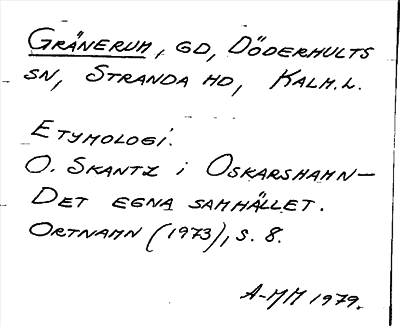 GRÄNERUM, GD, DÖDERHULTS
SN, STRANDA HD, KALM.L.
ETYMOLOGI:
O. SKANTZ i OSKARSHAMN –
DET EGNA SAMHÄLLET.
ORTNAMN (1973), S. 8.
A-MM 1979.